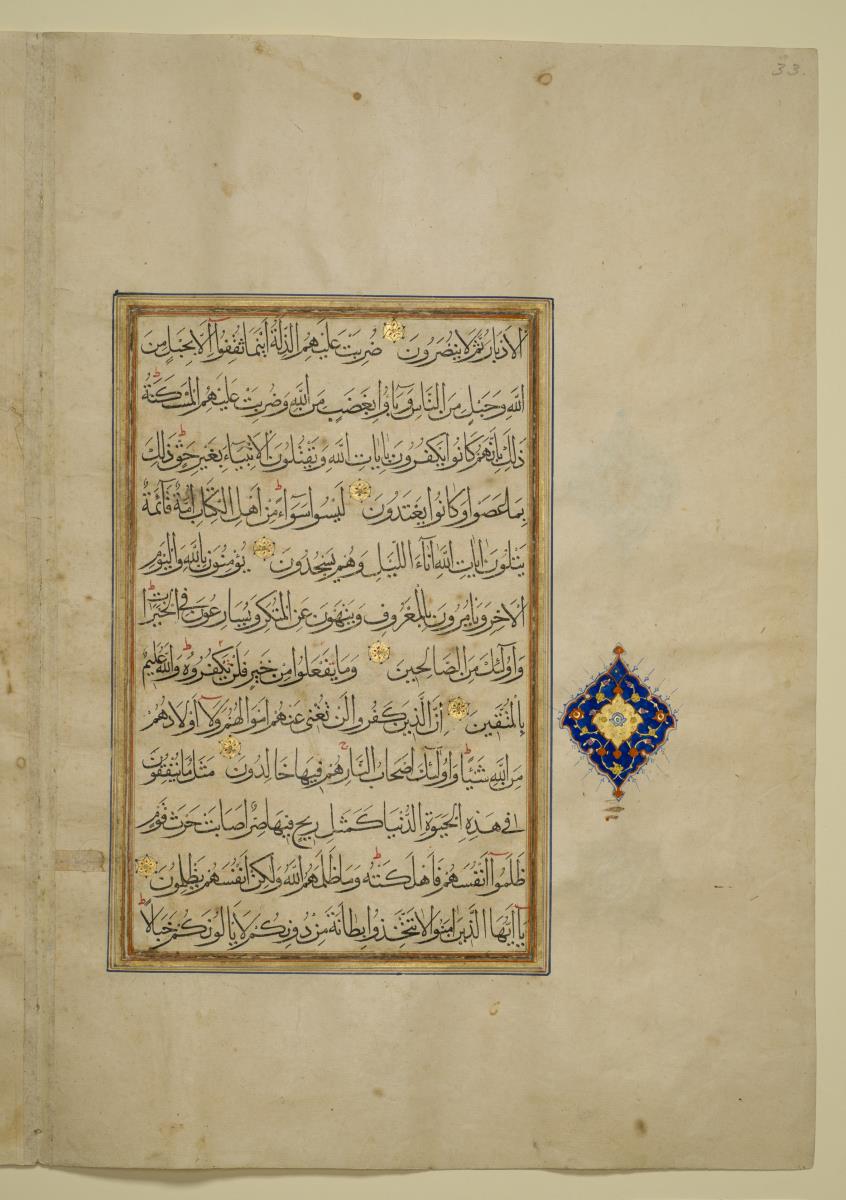 33.
الْأَدْبَارَ ثُمَّ لَا يُنْصَرُونَ ضُرِبَتْ عَلَيْهِمُ الذِّلَّةُ أَيْنَمَا ثُقِفُوا إِلَّا بِحَبْلٍ مِنَ
اللَّهِ وَحَبْلٍ مِنَ النَّاسِ وَبَاؤُا بِغَضَبٍ مِنَ اللَّهِ وَضُرِبَتْ عَلَيْهِمُ الْمَسْكَنَةُ
ذَلِكَ بِأَنَّهُمْ كَانُوا يَكْفُرُونَ بِايَاتِ اللَّهِ وَيَقْتُلُونَ الْأَنْبِيَاءَ بِغَيْرِ حَقٍّ ذَلِكَ
بِمَا عَصَوْا وَكَانُوا يَعْتَدُونَ لَيْسُوا سَوَاءً مِنْ أَهْلِ الْكِتَابِ أُمَّةٌ قَائِمَةٌ
يَتْلُونَ ايَاتِ اللَّهِ انَاءَ اللَّيْلِ وَهُمْ يَسْجُدُونَ يُؤْمِنُونَ بِاللَّهِ وَالْيَوْمِ
الْاخِرِ وَيَأْمُرُونَ بِالْمَعْرُوفِ وَيَنْهَوْنَ عَنِ الْمُنْكَرِ وَيُسَارِعُونَ فِي الْخَيْرَاتِ
وَأُولَئِكَ مِنَ الصَّالِحِينَ وَمَا تَفْعَلُوا مِنْ خَيْرٍ فَلَنْ تُكْفَرُوهُ وَاللَّهُ عَلِيمٌ
بِالْمُتَّقِينَ إِنَّ الَّذِينَ كَفَرُوا لَنْ تُغْنِيَ عَنْهُمْ أَمْوَالُهُمْ وَلَا أَوْلَادُهُمْ
مِنَ اللَّهِ شَيْئًا وَأُولَئِكَ أَصْحَابُ النَّارِ هُمْ فِيهَا خَالِدُونَ مَثَلُ مَا يُنْفِقُونَ
فِي هَذِهِ الْحَيَوةِ الدُّنْيَا كَمَثَلِ رِيحٍ فِيهَا صِرٌّ أَصَابَتْ حَرْثَ قَوْمٍ
ظَلَمُوا أَنْفُسَهُمْ فَأَهْلَكَتْهُ وَمَا ظَلَمَهُمُ اللَّهُ وَلَكِنْ أَنْفُسَهُمْ يَظْلِمُونَ
يَا أَيُّهَا الَّذِينَ امَنُوا لَا تَتَّخِذُوا بِطَانَةً مِنْ دُونِكُمْ لَا يَأْلُونَكُمْ خَبَالًا